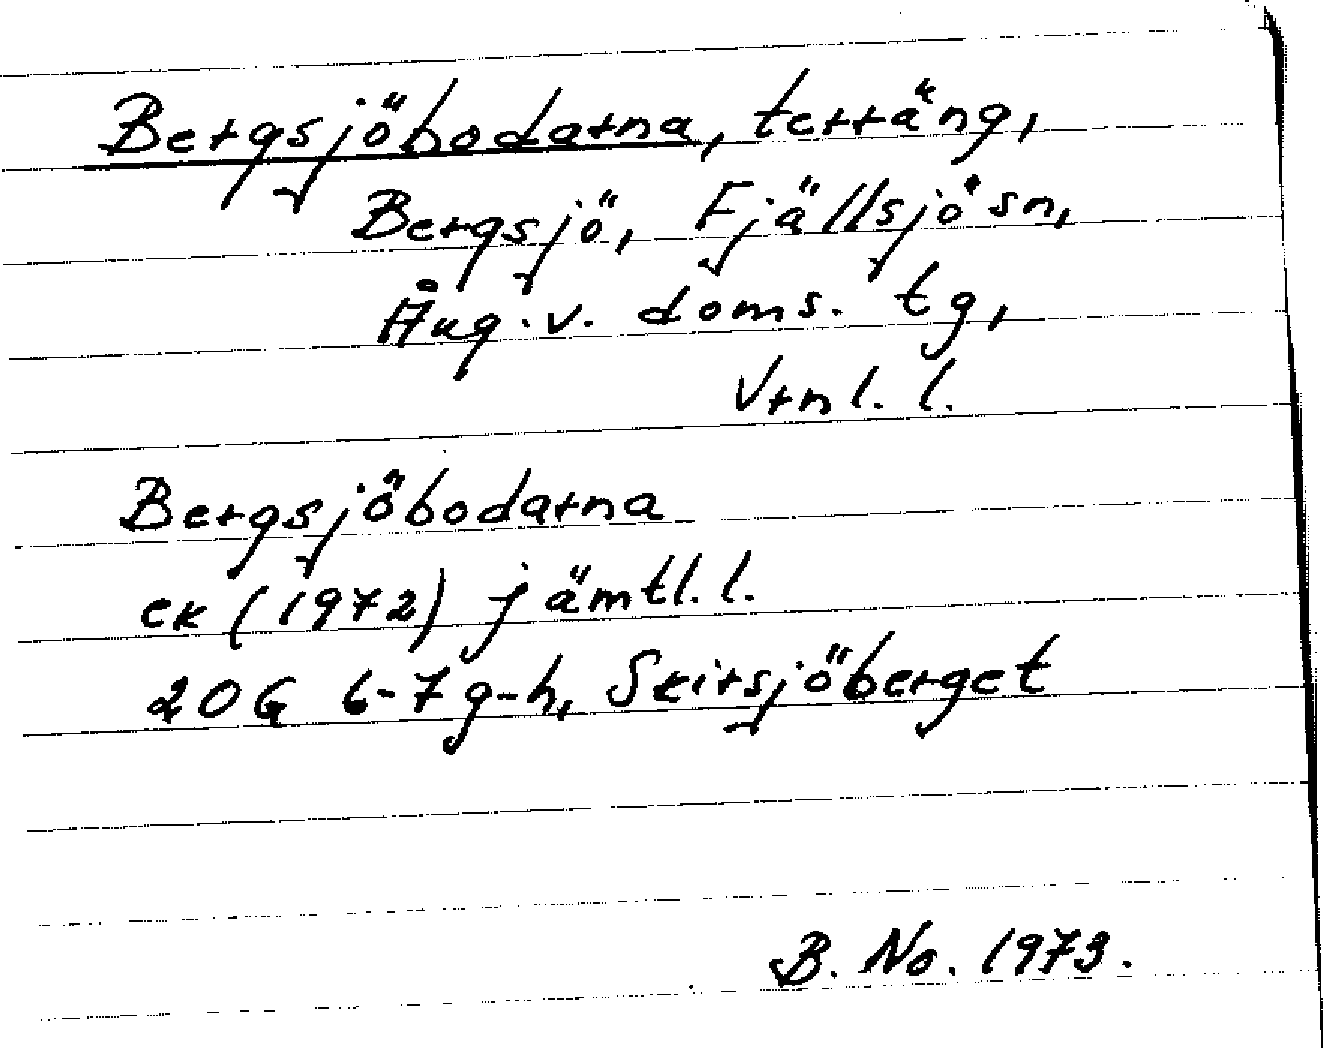 Bergsjöbodarna, terräng,
Bergsjö, Fjällsjö sn,
Ång. v. doms. tg,
Vrnl. l.
Bergsjöbodarna
ek (1972) jämtl. l.
20G 6-7 g-h, Skirsjöberget
B. No. 1973.